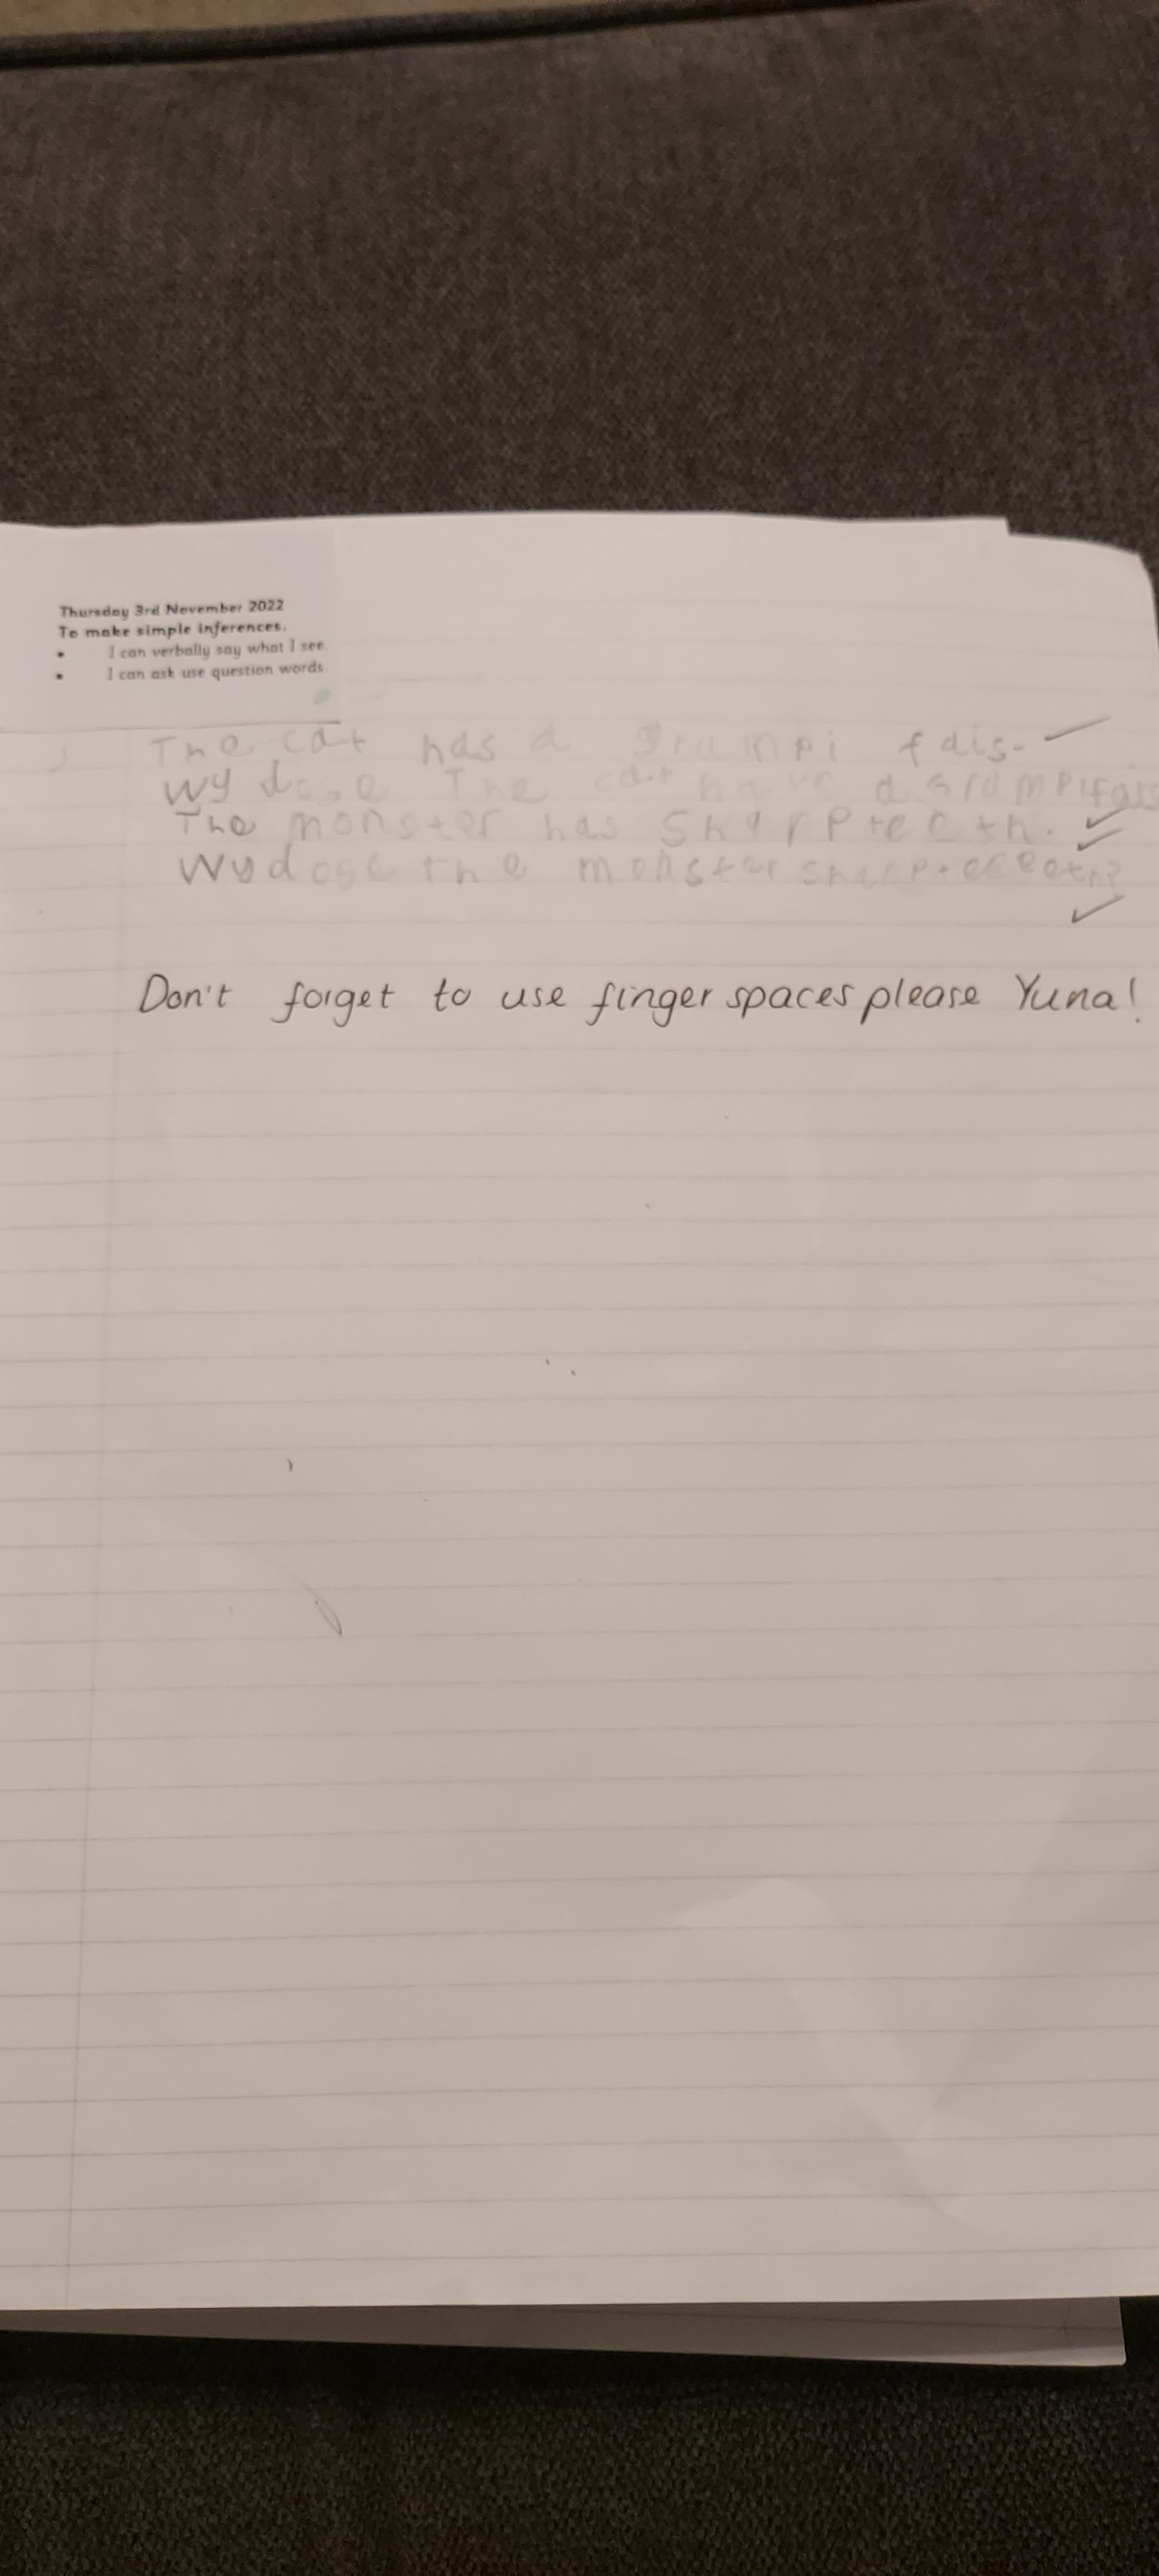 Thursday 3rd November 2022
To make simple inferences.
• I can verbally say what I see.
• I can ask use question words.
The cat has a grumpi fais.
Wy dose The cat have a grumpi fais
The monster has sharp teeth.
Wy dose the monster sharp
Don't forget to use finger spaces please Yuna!